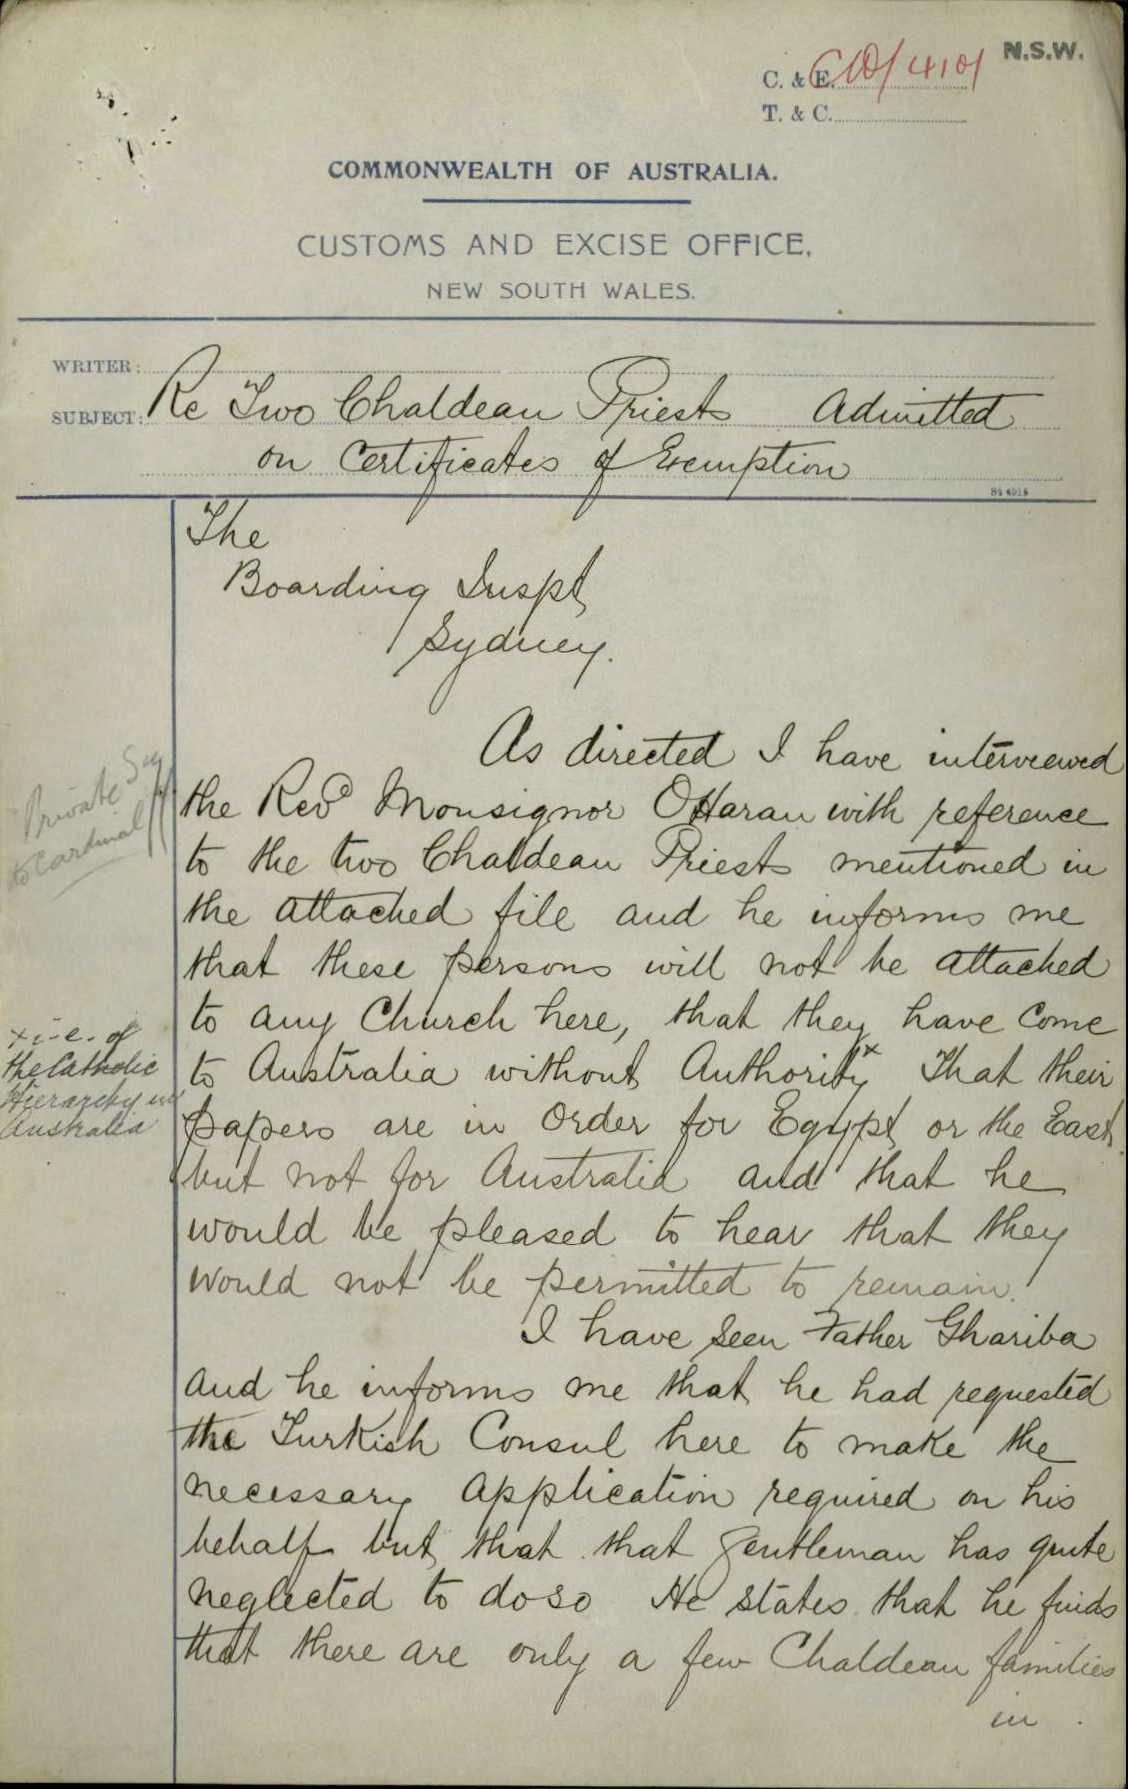 N.S.W.
C. & E. C10/4101
T. & C.
COMMONWEALTH OF AUSTRALIA.
CUSTOMS AND EXCISE OFFICE,
NEW SOUTH WALES.
WRITER:
SUBJECT: Re Two Chaldean Priests Admitted
on Certificates of Exemption
The
Boarding Inspt
Sydney.
As directed I have interviewed
the Revd Monsignor O'Haran with reference
to the two Chaldean Priests mentioned in
the attached file and he informs me
that these persons will not be attached
to any Church here, that they have come
to Australia without Authority x That their
papers are in Order for Egypt or the East
but not for Australia and that he
would be pleased to hear that they
would not be permitted to remain.
I have seen Father Ghariba
and he informs me that he had requested
the Turkish Consul here to make the
necessary application required on his
behalf but that that gentleman has quite
neglected to do so He states that he finds
that there are only a few Chaldean families
in
Private Secy
to Cardinal
x i-e. of
the Catholic
Hierarchy in
Australia